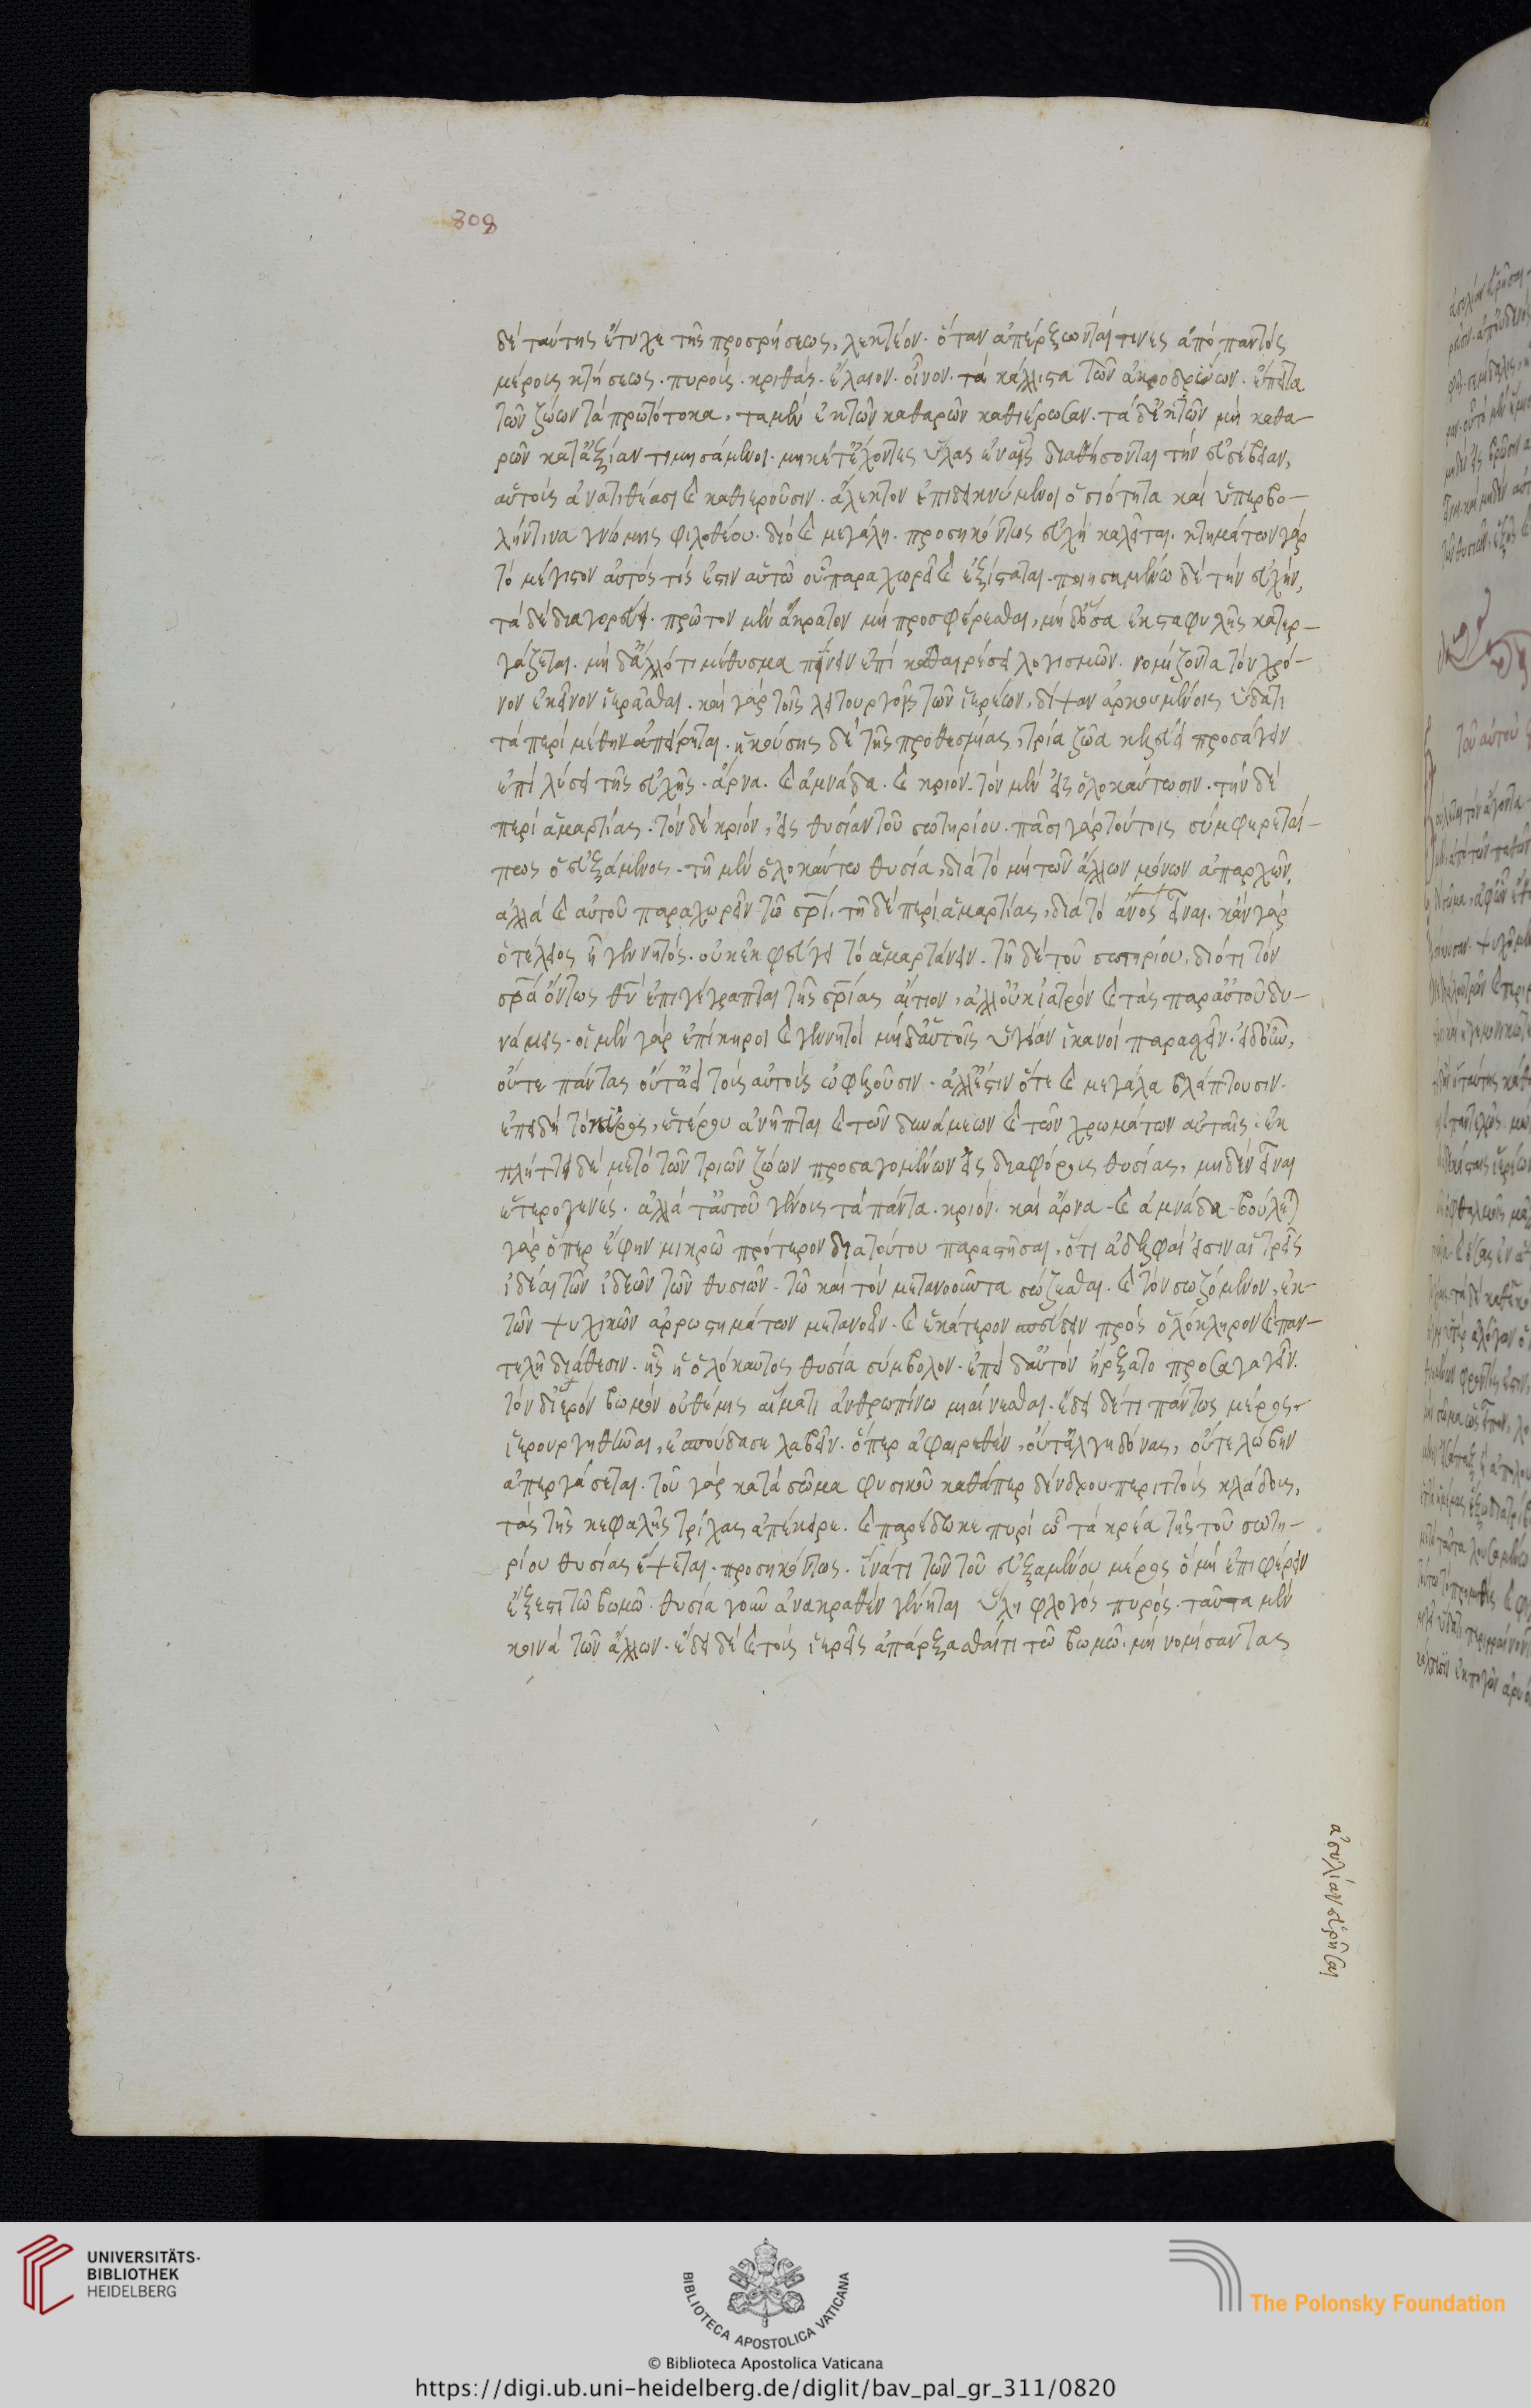 808
δέ ταύτης ἔτυχε τῆς προσρήσεως, λεκτέον. ὅταν ἀπέρξωνταί τινες ἀπό παντός
μέρους κτήσεως. πυρούς. κριθάς. ἔλαιον. οἶνον. τά κάλλιστα τῶν ἀκροδρύων. ἔπειτα
τῶν ζώων τά πρωτότοκα, τα μὲν ἐκ τῶν καθαρῶν καθιέρωσαν. τά δ' ἐκ τῶν μή καθα-
ρῶν κατ' ἀξίαν τιμησάμενοι. μηκέτ' ἔχοντες ὕλας ἐν αἷς διαθήσονται τήν εὐσέβειαν,
αὑτούς ἀνατιθέασι καὶ καθιεροῦσιν. ἄλεκτον ἐπιδεικνύμενοι ὁσιότητα καί ὑπερβο-
λήν τινα γνώμης φιλοθέου. διό καὶ μεγάλη. προσηκόντως εὐχή καλεῖται. κτημάτων γάρ
τό μέγιστον αὐτός τίς ἐστιν αὑτῶ οὗ παραχωρεῖ καὶ ἐξίσταται. ποιησαμένω δέ τήν εὐχήν,
τά δέ διαγορεύει. πρῶτον μὲν ἄκρατον μή προσφέρεσθαι, μή δ' ὅσα ἐκ σταφυλῆς κατερ-
γάζεται. μή δ' ἄλλό τι μέθυσμα πίνειν ἐπί καθαιρέσει λογισμῶν. νομίζοντα τόν χρό-
νον ἐκεῖνον ἱερᾶσθαι. καί γάρ τοῖς λειτουργοῖς τῶν ἱερέων, δίψαν ἀρκουμένοις ὕδατι
τά περί μέθην ἀπείρηται. ἡκούσης δέ τῆς προθεσμίας, τρία ζῶα κελεύει προσάγειν
ἐπί λύσει τῆς εὐχῆς. ἄρνα. καὶ ἀμνάδα. καὶ κριόν. τόν μὲν εἰς ὁλοκαύτωσιν. τήν δέ
περί ἁμαρτίας. τόν δέ κριόν, εἰς θυσίαν τοῦ σωτηρίου. πᾶσι γάρ τούτοις σύμφερεταί-
πως ὁ εὐξάμενος. τῆ μὲν ὁλοκαύτω θυσία, διά τό μή τῶν ἄλλων μόνων ἀπαρχῶν,
ἀλλά καὶ αὑτοῦ παραχωρεῖν τῶ σρ͞ι. τῆ δέ περί ἁμαρτίας, διά τό ἄν͞ος εἶναι. κἄν γάρ
ὁ τέλειος ἧ γεννητός. οὐκ ἐκφεύγει τό ἁμαρτάνειν. τῆ δέ τοῦ σωτηρίου, διότι τόν
σρ͞α ὄντως θ͞ν ἐπιγέγραπται τῆς σρ͞ίας αἴτιον, ἀλλ' οὐκ ἰατρόν καὶ τάς παρ' αὐτοῦ δυ-
νάμεις. οἱ μὲν γάρ ἐπίκηροι καὶ γεννητοί μή δ' αὑτοῖς ὑγίειαν ἱκανοί παρασχεῖν.
οὔτε πάντας οὔτ' ἀεί τούς αὐτούς ὠφελοῦσιν. ἀλλ' ἔστιν ὅτε καὶ μεγάλα βλάπτουσιν.
ἐπειδή τό κῦρος, ἑτέρου ἀνῆπται καὶ τῶν δυνάμεων καὶ τῶν χρωμάτων αὐταῖς. ἐκ
πλήττει δέ με τό τῶν τριῶν ζώων προσαγομένων εἰς διαφόρους θυσίας, μηδέν εἶναι
ἑτερογενές. ἀλλά ταὐτοῦ γένους τά πάντα. κριόν. καί ἄρνα. καὶ ἀμνάδα. βούλεται
γάρ ὅπερ ἔφην μικρῶ πρότερον διά τούτου παραστῆσαι, ὅτι ἀδελφαί εἰσιν αἱ τρεῖς
ἰδέαι τῶν ἰδεῶν τῶν θυσιῶν. τῶ καί τόν μετανοοῦντα σώζεσθαι. καὶ τόν σωζόμενον, ἐκ
τῶν ψυχικῶν ἀρρωστημάτων μετανοεῖν. καὶ ἑκάτερον σπεύδειν πρός ὁλόκληρον καὶ παν-
τελῆ διάθεσιν. ἧς ἡ ὁλόκαυτος θυσία σύμβολον. ἐπεί δ' αὑτόν ἤρξατο προσαγαγεῖν.
τόν δ' ἱερόν βωμόν οὐ θέμις αἵματι ἀνθρωπίνω μιαίνεσθαι. ἔδει δέ τι πάντως μέρος
ἱερουργηθῆναι, ἐσπούδασε λαβεῖν. ὅπερ ἀφαιρεθέν, οὔτ' ἀλγηδόνας, οὔτε λώβην
ἀπεργάσεται. τοῦ γάρ κατά σῶμα φυσικοῦ καθάπερ δένδρου περιττούς κλάδους,
τάς τῆς κεφαλῆς τρίχας ἀπέκειρε. καὶ παρέδωκε πυρί ὧ τά κρέα τῆς τοῦ σωτη-
ρίου θυσίας ἕψεται. προσηκόντως. ἵνά τι τῶν τοῦ εὐξαμένου μέρος ὅ μή ἐπιφέρειν
ἔξεστι τῶ βωμῶ. θυσία γοῦν ἀνακραθέν γένηται ὕλη φλογός πυρός. ταῦτα μὲν
κοινά τῶν ἄλλων. ἔδει δέ καὶ τούς ἱερεῖς ἀπάρξασθαί τι τῶ βωμῶ. μή νομίσαντας
ἀσυλίαν εὑρῆσθαι
UNIVERSITÄTS-
BIBLIOTHEK
HEIDELBERG
BIBLIOTECA APOSTOLICA VATICANA
The Polonsky Foundation
© Biblioteca Apostolica Vaticana
https://digi.ub.uni-heidelberg.de/diglit/bav_pal_gr_311/0820